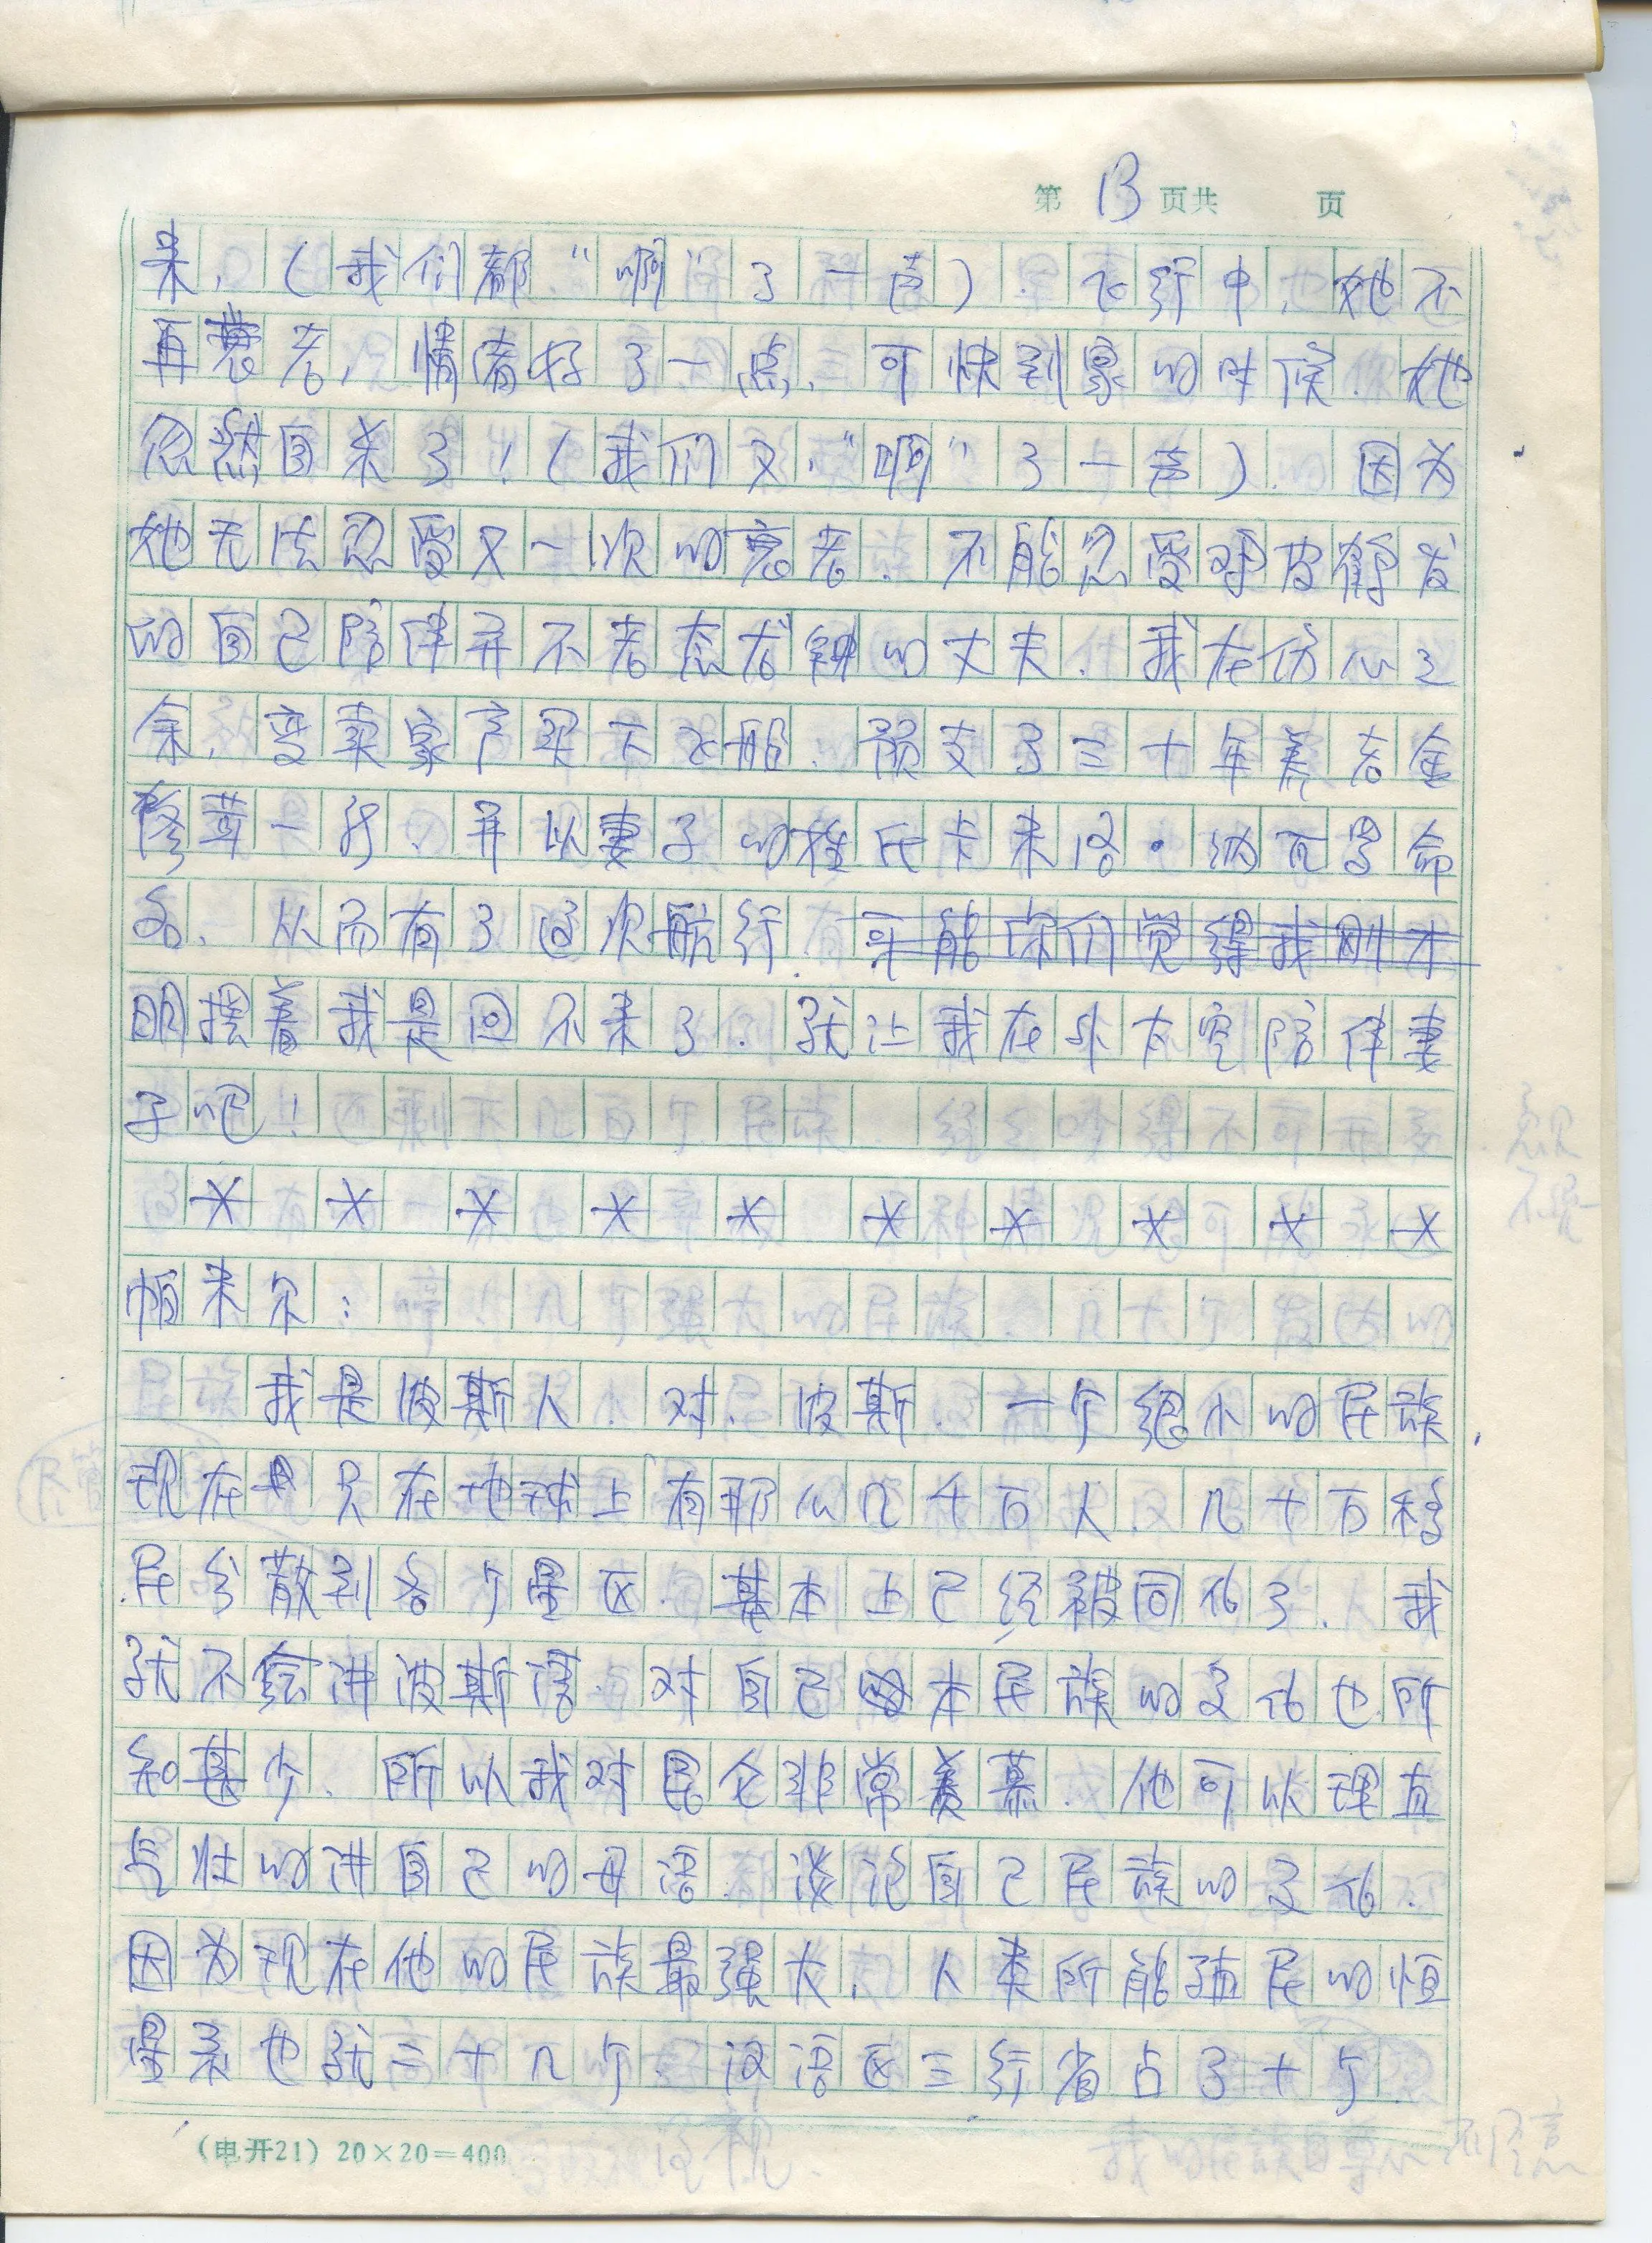 第 13 页共 页
来，（我们都“啊”了一声）．飞行中，她不
再衰老，情绪好了一点．可快到家的时候．她
忽然自杀了！（我们又“啊”了一声）．因为
她无法忍受又一次的衰老．不能忍受鸡皮鹤发
的自己陪伴并不老态龙钟的丈夫．我在伤心之
余，变卖家产买下飞船．预支了三十年养老金
修茸一新．并以妻子的姓氏卡来洛·纳瓦罗命
名．从而有了这次航行．可能你们觉得我刚才
明摆着我是回不来了．就让我在外太空陪伴妻
子吧！
* * * * * * * * * *
帕来尔：
我是波斯人．对．波斯．一个绝小的民族，
现在只在地球上有那么几千万人．几十万移
民分散到各个星区．基本上已经被同化了．我
就不会讲波斯语．对自己本民族的文化也所
知甚少．所以我对昆仑非常羡慕．他可以理直
气壮的讲自己的母语．谈论自己民族的文化．
因为现在他的民族最强大．人类所能殖民的恒
星系也就三十几个．汉语区三行省占了十个
（电开21）20×20=400